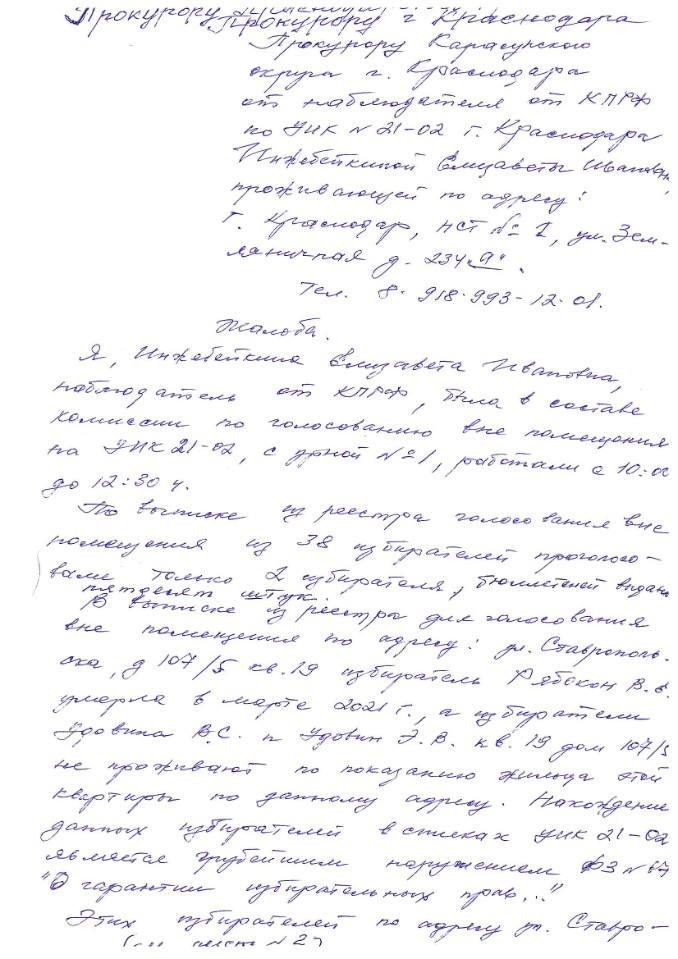 Прокурору Прокурору г Краснодара
Прокурору Карасунского
округа г. Краснодара
от наблюдателя от КПРФ
по УИК N 21-02 г. Краснодара
Инжебейкиной Елизаветы Ивановн
проживающей по адресу:
г. Краснодар, НСТ № 1, ул. Зем-
ляничная д. 234 "А".
Тел. 8-918-993-12-01.
Жалоба.
Я, Инжебейкина Елизавета Ивановна,
наблюдатель от КПРФ, была в составе
комиссии по голосованию вне помещения
на УИК 21-02, с урной №1, работали с 10:00
до 12:30 ч.
По выписке из реестра голосования вне
помещения из 38 избирателей проголосо-
вали только 2 избирателя, бюллетеней выдано
пятьдесят штук.
В выписке из реестра для голосования
вне помещения по адресу: ул. Ставрополь-
ска, д 107/5 кв. 19 избиратель В.
умерла в марте 2021 г., а избиратели
Удовина В.С. и Удовин Э.В. кв. 19 дом 107/5
не проживают по показанию жильца этой
квартиры по данному адресу. Нахождение
данных избирателей в списках УИК 21-02
является грубейшим нарушением ФЗ N 67
"О гарантии избирательных прав..."
Этих избирателей по адресу ул. Ставро-
N 2)